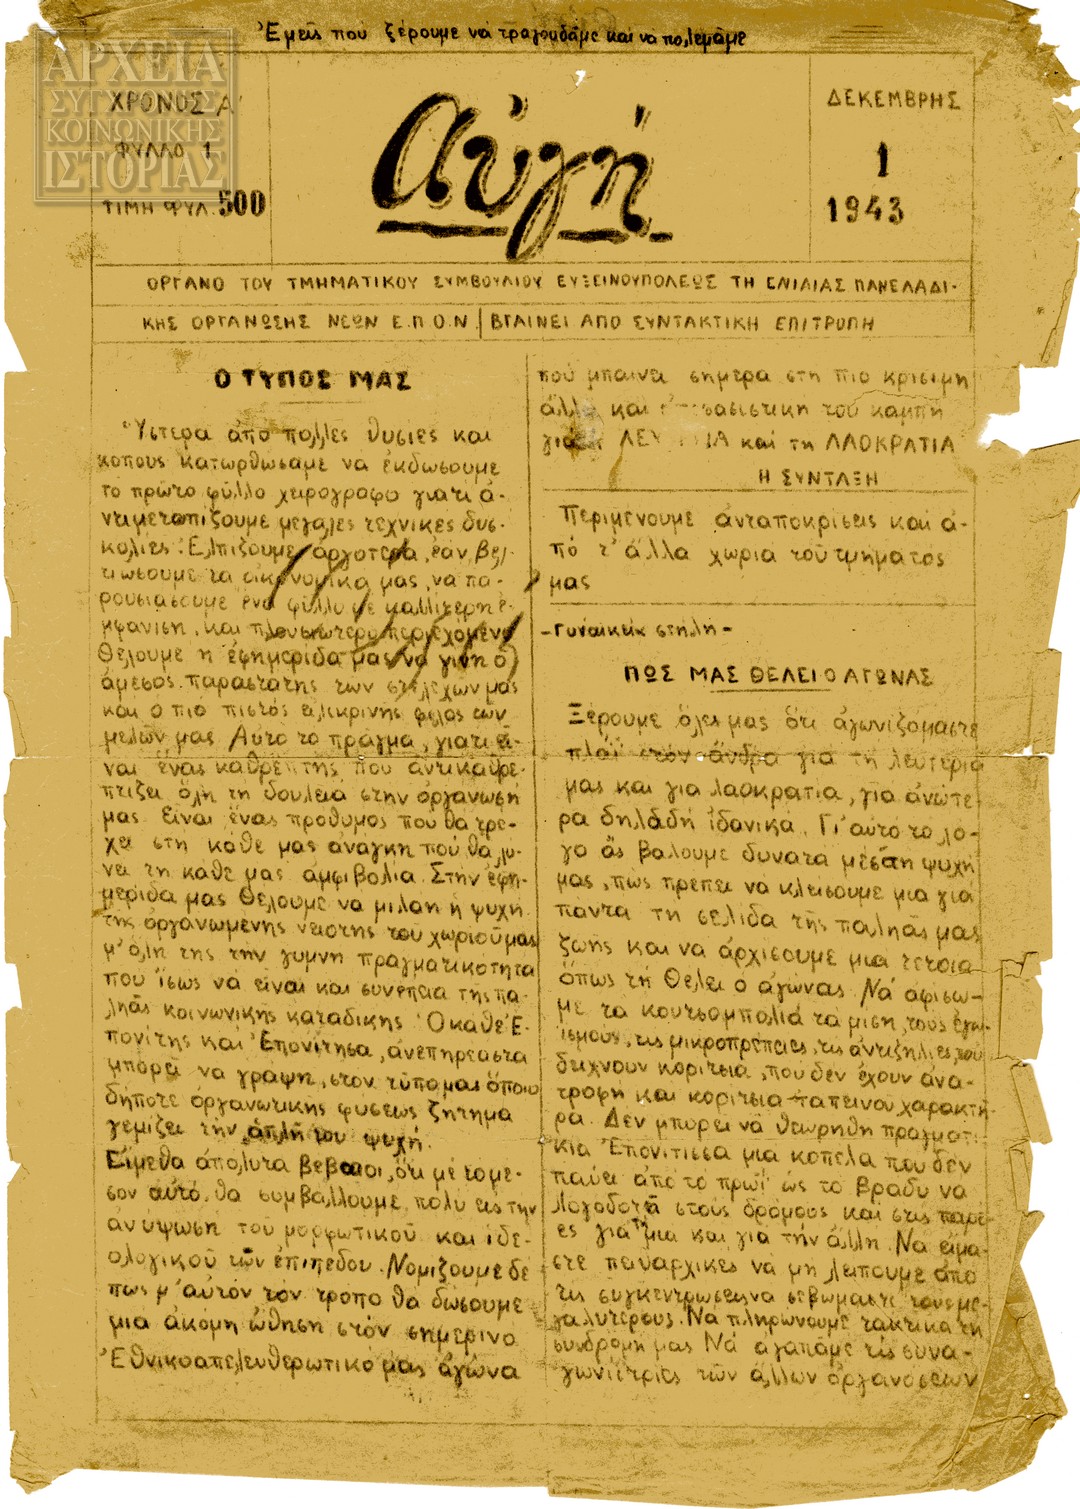 Ἐμεῖς ποὺ ξέρουμε νὰ τραγουδᾶμε καὶ νὰ πολεμᾶμε
ΑΡΧΕΙΑ
ΣΥΓΧΡΟΝΗΣ
ΚΟΙΝΩΝΙΚΗΣ
ΙΣΤΟΡΙΑΣ
ΧΡΟΝΟΣ Α'
ΦΥΛΛΟ 1
ΤΙΜΗ ΦΥΛ. 500
Αὐγή
ΔΕΚΕΜΒΡΗΣ
1
1943
ΟΡΓΑΝΟ ΤΟΥ ΤΜΗΜΑΤΙΚΟΥ ΣΥΜΒΟΥΛΙΟΥ ΕΥΞΕΙΝΟΥΠΟΛΕΩΣ ΤΗ ΕΝΙΑΙΑΣ ΠΑΝΕΛΑΔΙ-
ΚΗΣ ΟΡΓΑΝΩΣΗΣ ΝΕΩΝ Ε.Π.Ο.Ν. ΒΓΑΙΝΕΙ ΑΠΟ ΣΥΝΤΑΚΤΙΚΗ ΕΠΙΤΡΟΠΗ
Ο ΤΥΠΟΣ ΜΑΣ
Ὕστερα ἀπο πολλες θυσιες και
κοπους κατωρθωσαμε να ἐκδωσουμε
το πρωτο φυλλο χειρογραφο γιατι ἀ-
ντιμετωπιζουμε μεγαλες τεχνικες δυσ-
κολιες. Ἐλπιζουμε ἀργοτερα, ἐαν βελ-
τιωσουμε τα οἰκονομικα μας, να πα-
ρουσιασουμε ενα φυλλο με καλλιτερη ἐ-
μφανιση, και πλουσιωτερο περιεχομενο
Θελουμε ἡ ἐφημεριδα μας να γινη ὁ
ἀμεσος παραστατης των στελεχων μας
και ο πιο πιστος εἰλικρινης φιλος των
μελῶν μας Αὐτο το πραγμα, γιατι εἰ-
ναι ἕνας καθρεπτης που ἀντικαθρε-
πτιζει ὅλη τη δουλεια στην ὀργανωση
μας. Εἰναι ἕνας προθυμος που θα τρε-
χει στη κάθε μας ἀναγκη που θα λυ-
νει τη κάθε μας ἀμφιβολια. Στην ἐφη-
μεριδα μας θελουμε να μιλαη ἡ ψυχη
της ὀργανωμενης νεοτης του χωριοῦ μας
μ' ὅλη της την γυμνη πραγματικοτητα
που ἴσως νὰ εἰναι και συνεπεια της πα-
ληᾶς κοινωνικης καταδικης. Ὁ καθε Ἐ-
πονίτης καὶ Ἐπονίτησα, ἀνεπηρεαστα
μπορεῖ να γραψη, στον τύπο μας ὅποιο
δήποτε ὀργανωτικης φυσεως ζητημα
γεμιζει την ἁπλη του ψυχή.
Εἰμεθα ἀπολυτα βεβαιοι, ὅτι μὲ το με-
σον αὐτό, θα συμβαλλουμε πολυ εἰς την
ἀνυψωση τοῦ μορφωτικοῦ και ἰδε-
ολογικοῦ των ἐπιπεδου. Νομιζουμε δε
πως μ' αὐτόν τόν τροπο θα δωσουμε
μια ἀκομη ὠθηση στόν σημερινο
Ἐθνικοαπελευθερωτικό μας ἀγώνα
πού μπαινει σημερα στη πιο κρισιμη
ἀλλα και ἀποφασιστικη του καμπη
για τη και τη ΛΑΟΚΡΑΤΙΑ
Η ΣΥΝΤΑΞΗ
Περιμενουμε ἀνταποκρίσεις και ἀ-
πό τ' ἀλλα χωρια τοῦ τμηματος
μας
-Γυναικεια στηλη-
ΠΩΣ ΜΑΣ ΘΕΛΕΙ Ο ΑΓΩΝΑΣ
Ξέρουμε ὅλες μας ὅτι ἀγωνιζομαστε
πλαϊ στόν ἄνδρα για τη λευτερια
μας και για λαοκρατια, για ἀνώτε-
ρα δηλαδή ἰδανικα. Γι' αὐτο το λο-
γο ἄς βαλουμε δυνατα μέσ' τη ψυχή
μας, πως πρεπει νὰ κλεισουμε μια για
παντα τη σελιδα τῆς παληᾶς μας
ζωης και να ἀρχισουμε μια τετοια
ὅπως τη θελει ο ἀγώνας. Νά ἀφισω-
με τα κουτσομπολιά τα μιση, τους ἐγω-
ϊσμούς, τις μικροπρέπειες, τις ἀντιζηλιες, που
δειχνουν κοριτσια, που δεν ἐχουν ἀνα-
τροφή και κοριτσια ταπεινου χαρακτή-
ρα. Δεν μπορει νὰ θεωρηθη πραγματι-
κια Ἐπονιτισσα μια κοπελα που δεν
παυει ἀπο το πρωῒ ὡς το βραδυ να
λογοδοτῆ στους δρόμους και στις παρέ-
ες γιὰ τη μια και για την ἀλλη. Να εἰμα-
στε πειθαρχικες νὰ μη λειπουμε ἀπο
τις συγκεντρωσεις να σεβωμαστε τους με-
γαλυτέρους. Νὰ πληρώνουμε τακτικα τη
συνδρομη μας Νά ἀγαπᾶμε τις συνα-
γωνιστριες των ἀλλων ὀργανώσεων